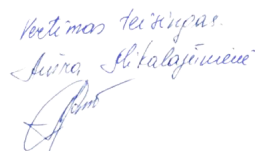 Vertimas teisingas.
Aušra Mikalajūnienė